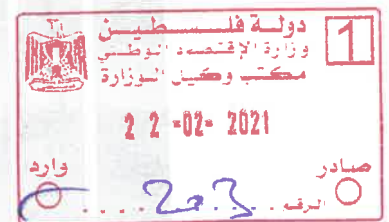 دولة فلسطين
1
وزارة الإقتصاد الوطني
مكتب وكيل الوزارة
2 2 -02- 2021
صادر
وارد
الرقم 203